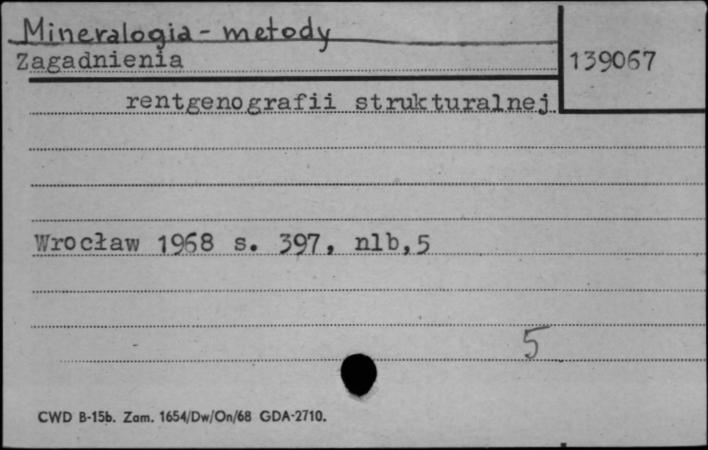 Mineralogia - metody
Zagadnienia
139067
rentgenografii strukturalnej
Wrocław 1968 s. 397, nlb,5
5
CWD B-15b. Zam. 1654/Dw/On/68 GDA-2710.